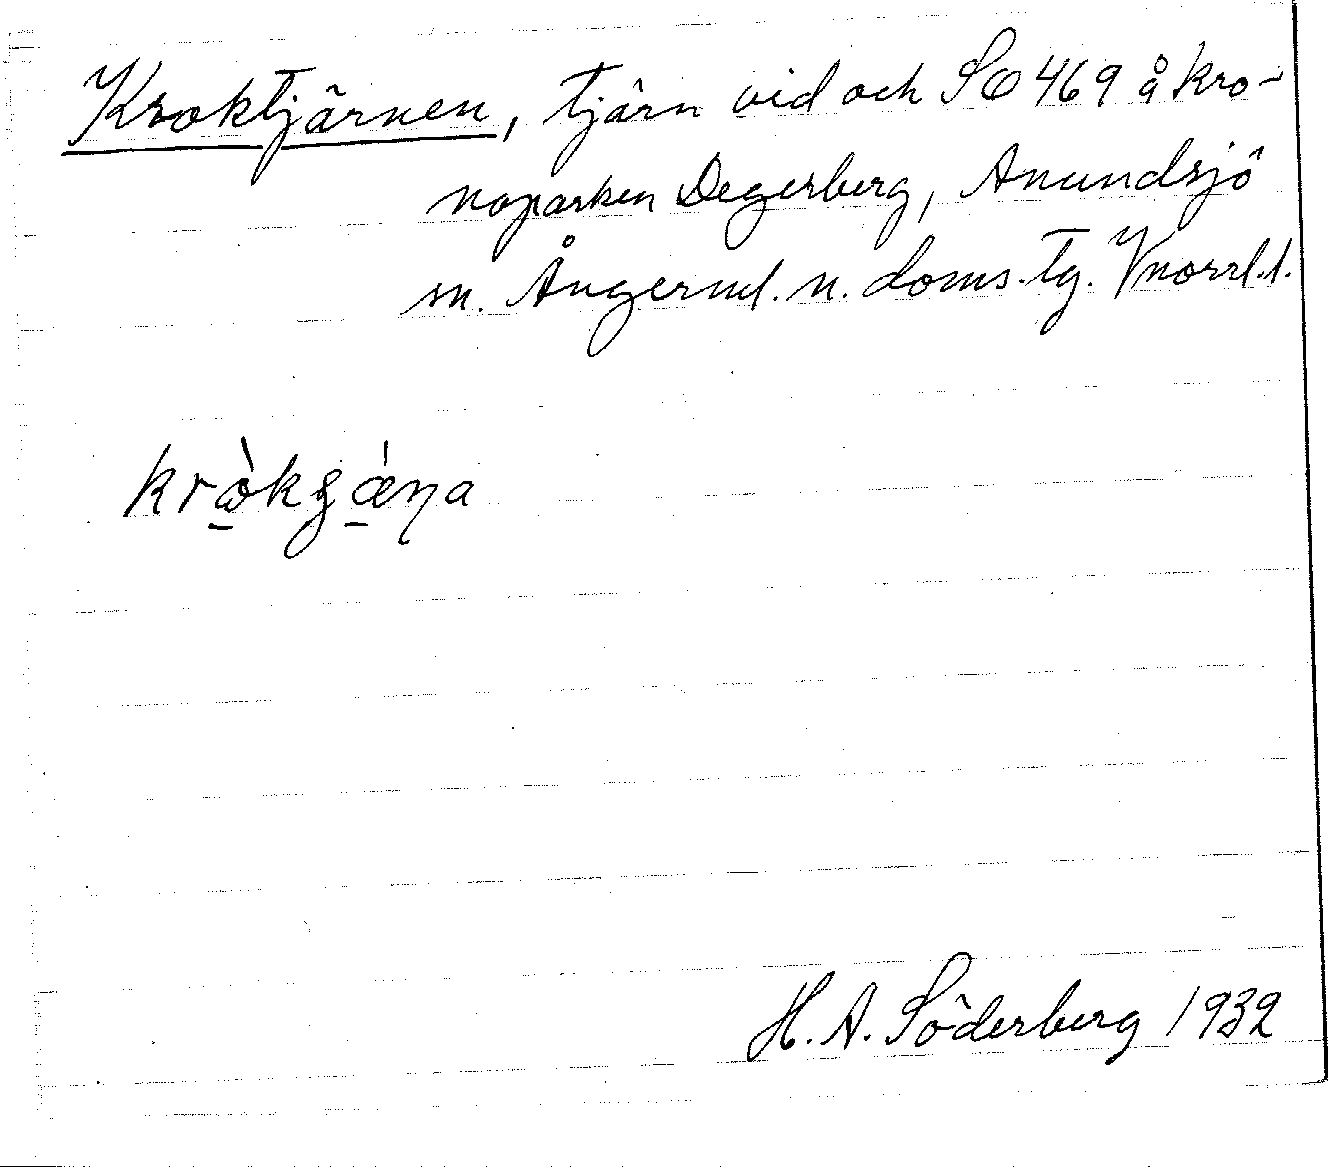 Kroktjärnen, tjärn vid och SO 469 å kro-
noparken Degerberg, Anundsjö
sn. Ångerml. n. doms. tg. Vnorrl. l.
H. A. Söderberg 1932